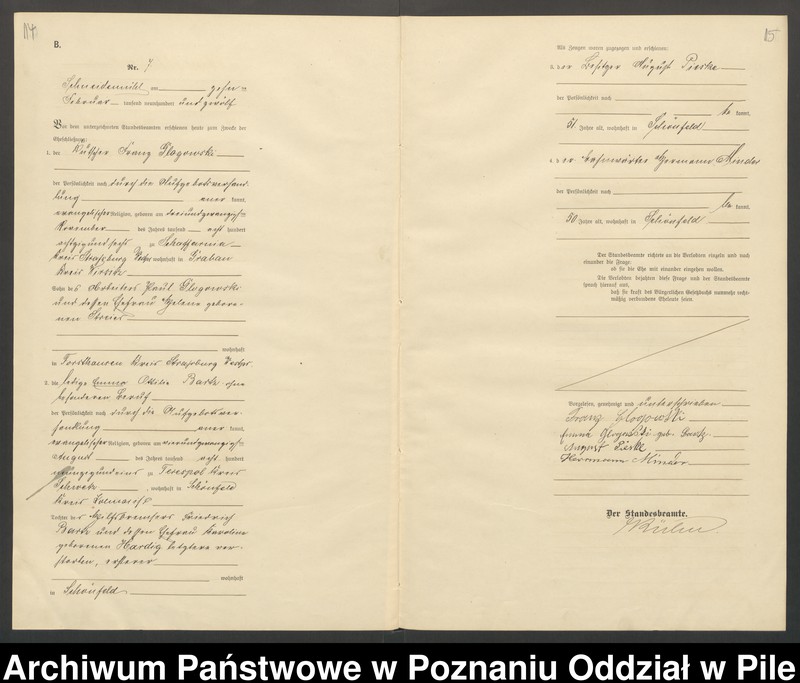 14
B.
Nr. 7
Schneidemühl am zehnten
Februar tausend neunhundert und zwölf
Vor dem unterzeichneten Standesbeamten erschienen heute zum Zwecke der
Eheschließung:
1. der Kutscher Franz Glogowski
der Persönlichkeit nach durch die Aufgebotsverhand
lung aner kannt,
evangelischer Religion, geboren am dreiundzwanzigsten
November des Jahres tausend acht hundert
achtzigundsechs zu
Kreis Strasburg Westpr wohnhaft in
Kreis
Sohn des Arbeiters Paul Glogowski
und dessen Ehefrau Helene gebore-
nen
wohnhaft
in Forsthausen Kreis Strasburg Westpr.
2. die ledige Emma Ottilie Bartz ohne
besonderen Beruf
der Persönlichkeit nach durch die Aufgebotsver-
handlung aner kannt,
evangelischer Religion, geboren am vierundzwanzigsten
August des Jahres tausend acht hundert
neunzigundeins zu Terespol Kreis
Schwetz, wohnhaft in Schönfeld
Kreis Kolmar i/P
Tochter des Hilfsbremsers Friedrich
Bartz und dessen Ehefrau Karoline
geborenen Hardig letztere ver-
storben, ersterer
wohnhaft
in Schönfeld
15
Als Zeugen waren zugezogen und erschienen:
3. der Besitzer August Pieske
der Persönlichkeit nach
be kannt,
51 Jahre alt, wohnhaft in Schönfeld
4. der Bahnwärter Hermann Minder
der Persönlichkeit nach
be kannt,
50 Jahre alt, wohnhaft in Schönfeld
Der Standesbeamte richtete an die Verlobten einzeln und nach
einander die Frage:
ob sie die Ehe mit einander eingehen wollen.
Die Verlobten bejahten diese Frage und der Standesbeamte
sprach hierauf aus,
daß sie kraft des Bürgerlichen Gesetzbuchs nunmehr recht-
mäßig verbundene Eheleute seien.
Vorgelesen, genehmigt und unterschrieben
Franz Glogowski
Emma Glogowski geb. Bartz
August Pieske
Hermann Minder
Der Standesbeamte.
Archiwum Państwowe w Poznaniu Oddział w Pile